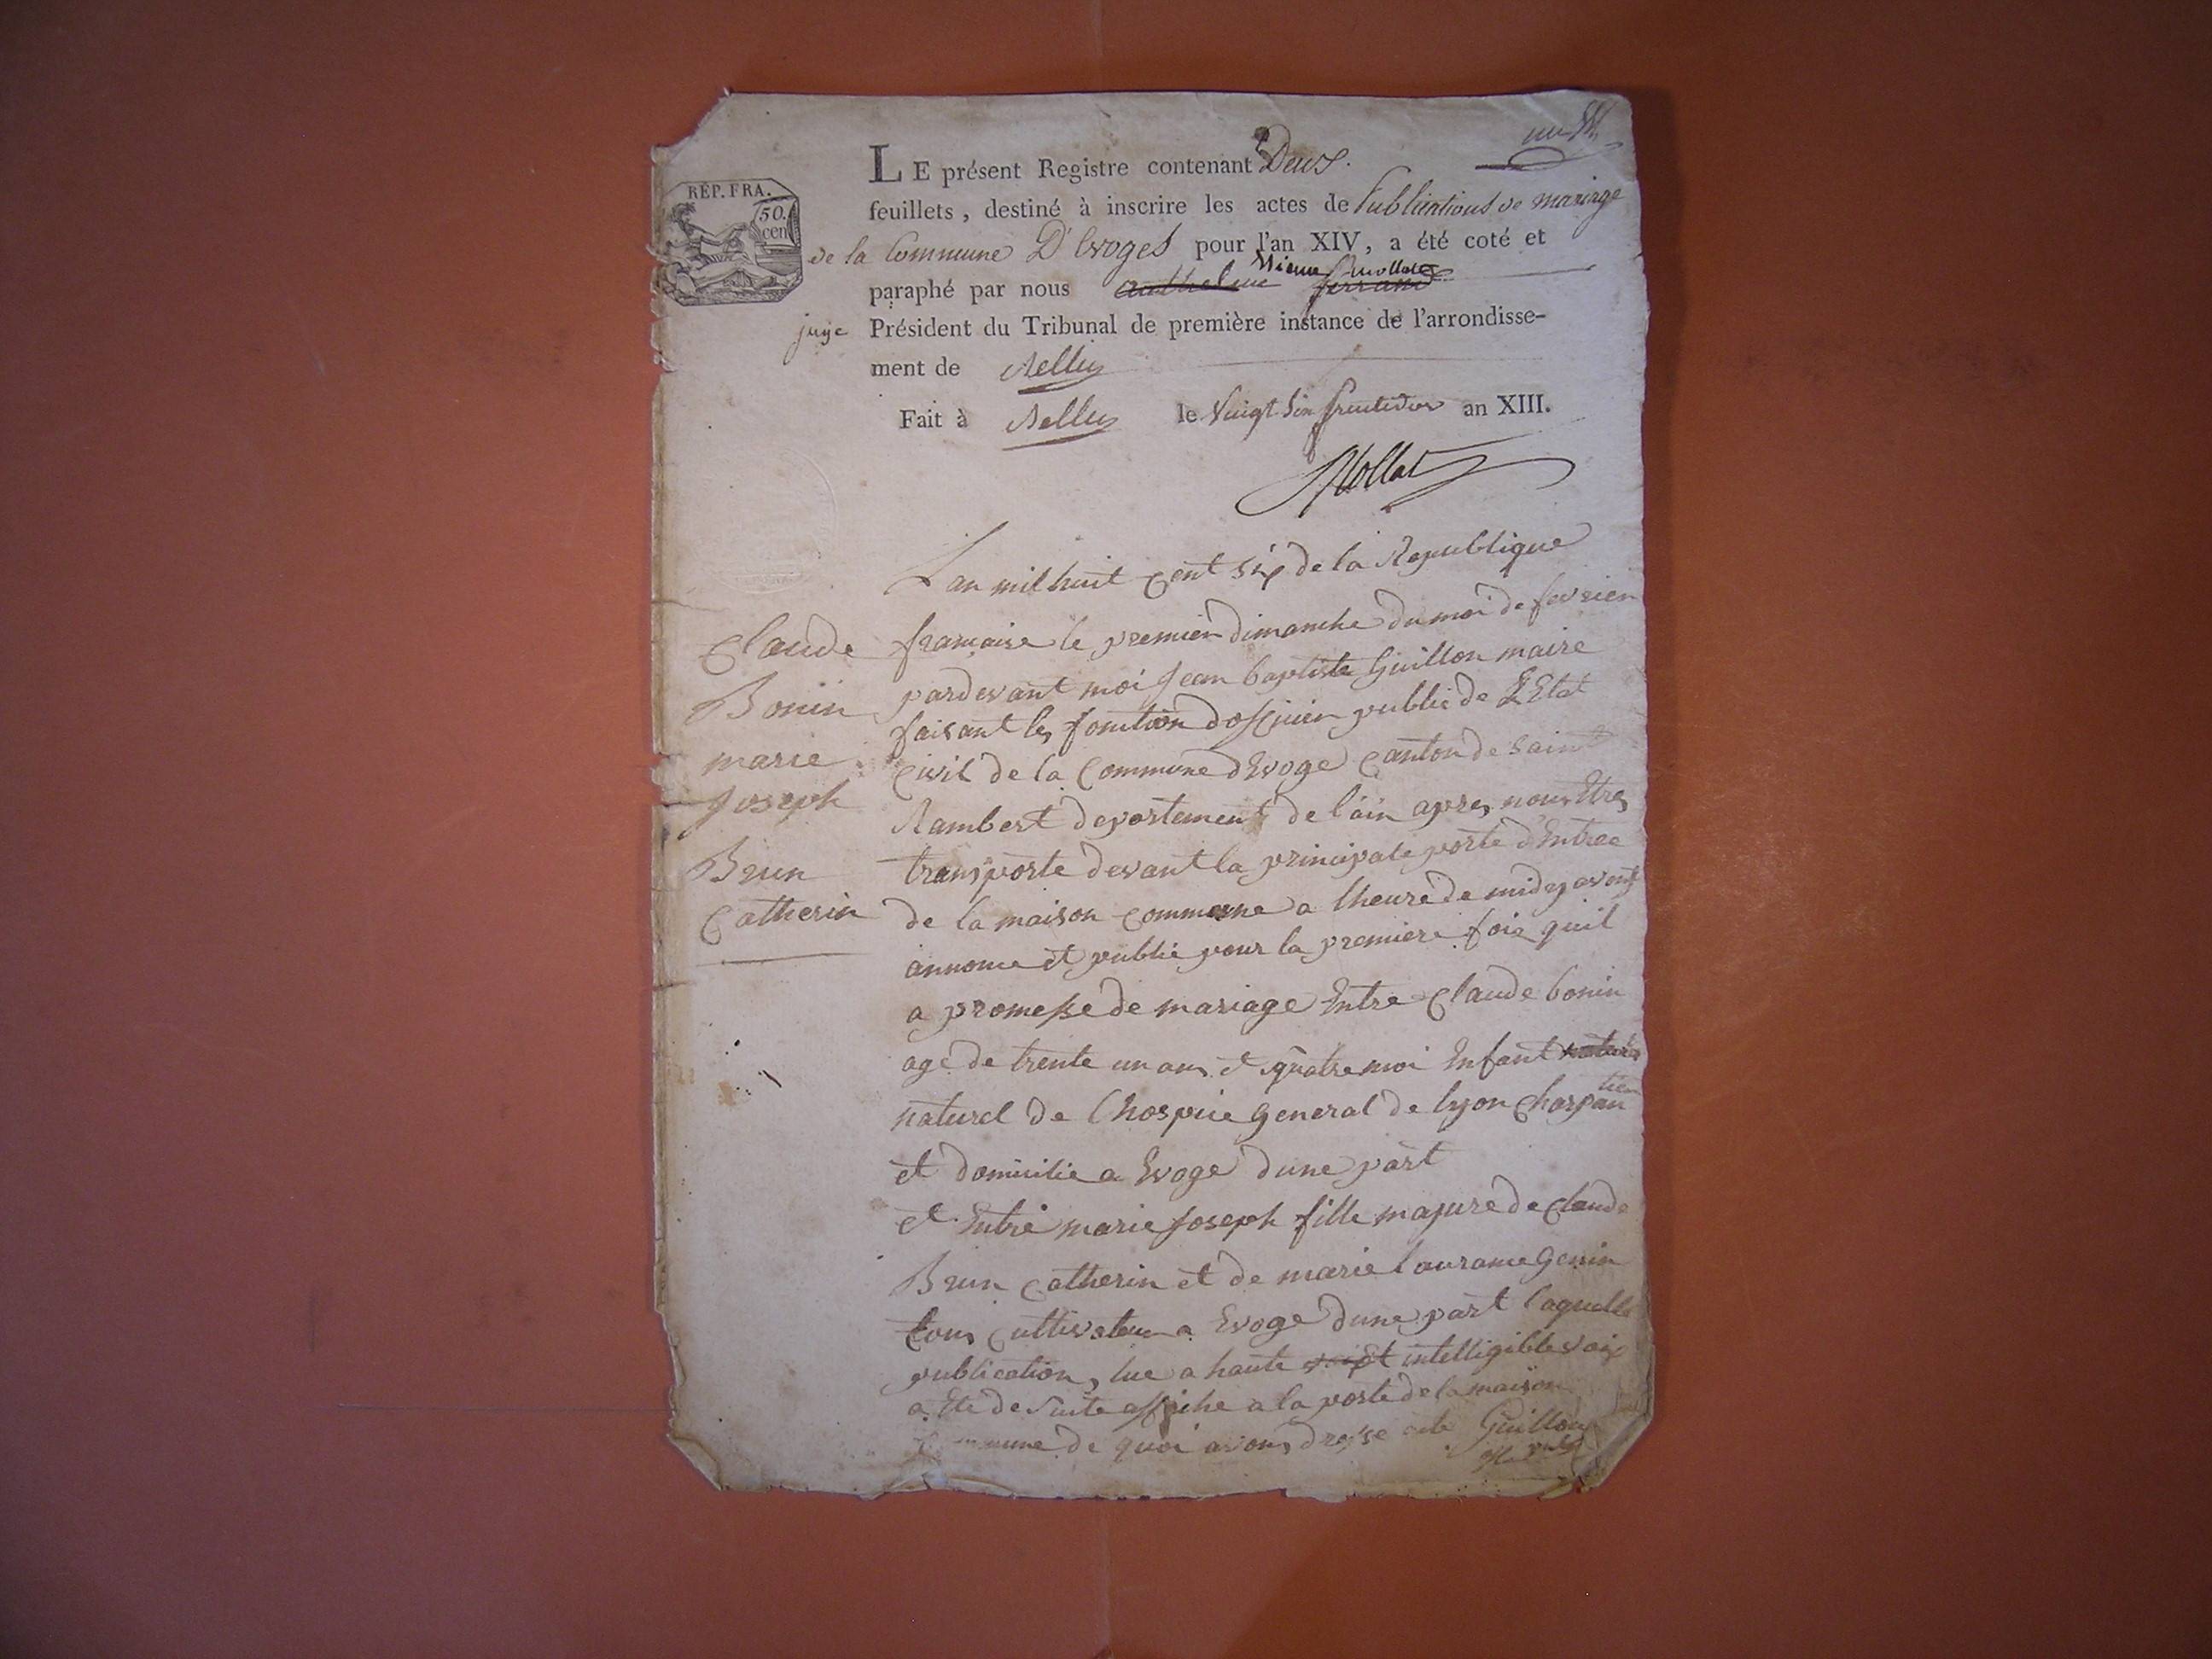 RÉP. FRA.
50.
cen
LE présent Registre contenant Deux.
feuillets, destiné à inscrire les actes de Publications de mariage
de la Commune D'Evoges pour l'an XIV, a été coté et
paraphé par nous
juge Président du Tribunal de première instance de l'arrondisse-
ment de Belley
Fait à Belley le Vingt Six fructidor an XIII.
Mollet
Lan mil huit cent six de la Republique
francaise le premier dimanche du moi de fevrier
pardevant moi jean baptiste Guillon maire
faisant les fonction dofficier public de L'Etat
civil de la Commune dEvoge canton de saint
Rambert departement de lain apres nous Etre
transporte devant la principale porte dEntree
de la maison commune a lheure de midy avons
annonce et publié pour la premiere fois quil
a promesse de mariage Entre Claude bonin
agé de trente un ans et quatre moi Enfant
naturel de lhospice general de lyon charpantier
et domicilie a Evoge dune part
et Entre marie joseph fille majure de Claude
Brun Catherin et de marie laurance Genin
tous cultivateur a Evoge dune part laquelle
publication, lue a haute intelligible voix
a Ete de suite affiche a la porte de la maison
commune de quoi avons dresse acte Guillon
Claude
Bonin
marie
joseph
Brun
Catherin